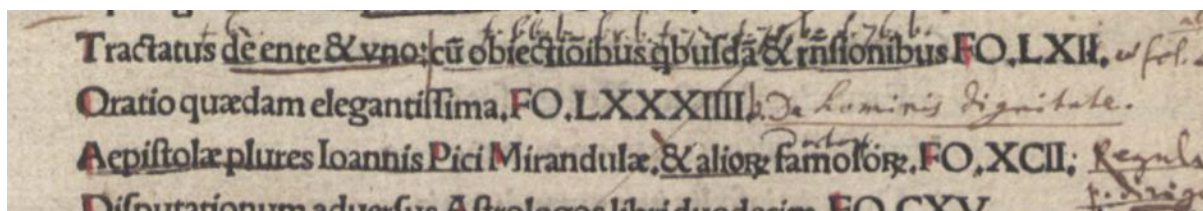 Tractatus de ente & vno: cū obiectiōibus qbusdā & rn̄sionibus FO. LXII.
Oratio quædam elegantissima. FO. LXXXIIII. De hominis dignitate.
Aepistolæ plures Ioannis Pici Mirandulæ. & alioꝝ famosoꝝ. FO. XCII:
Disputationum aduersus Astrologos libri duodecim. FO. CXV